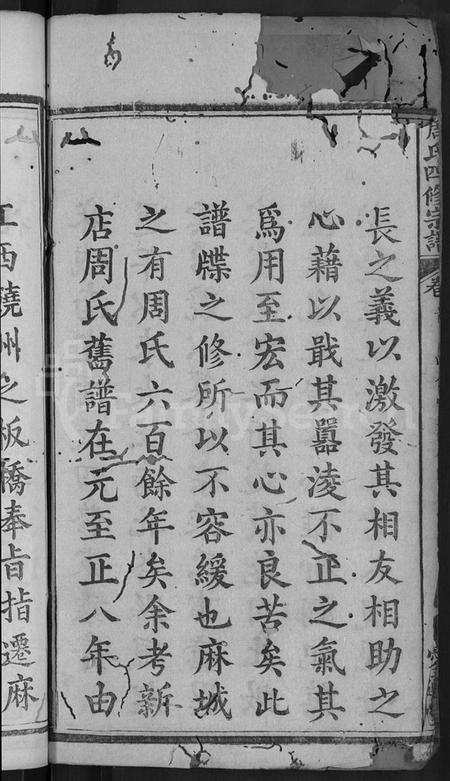 周氏四修宗譜
長之義以激發其相友相助之
心藉以戢其囂淩不正之氣其
爲用至宏而其心亦良苦矣此
譜牒之修所以不容緩也麻城
之有周氏六百餘年矣余考新
店周氏舊譜在元至正八年由
江西饒州之板橋奉旨指遷麻